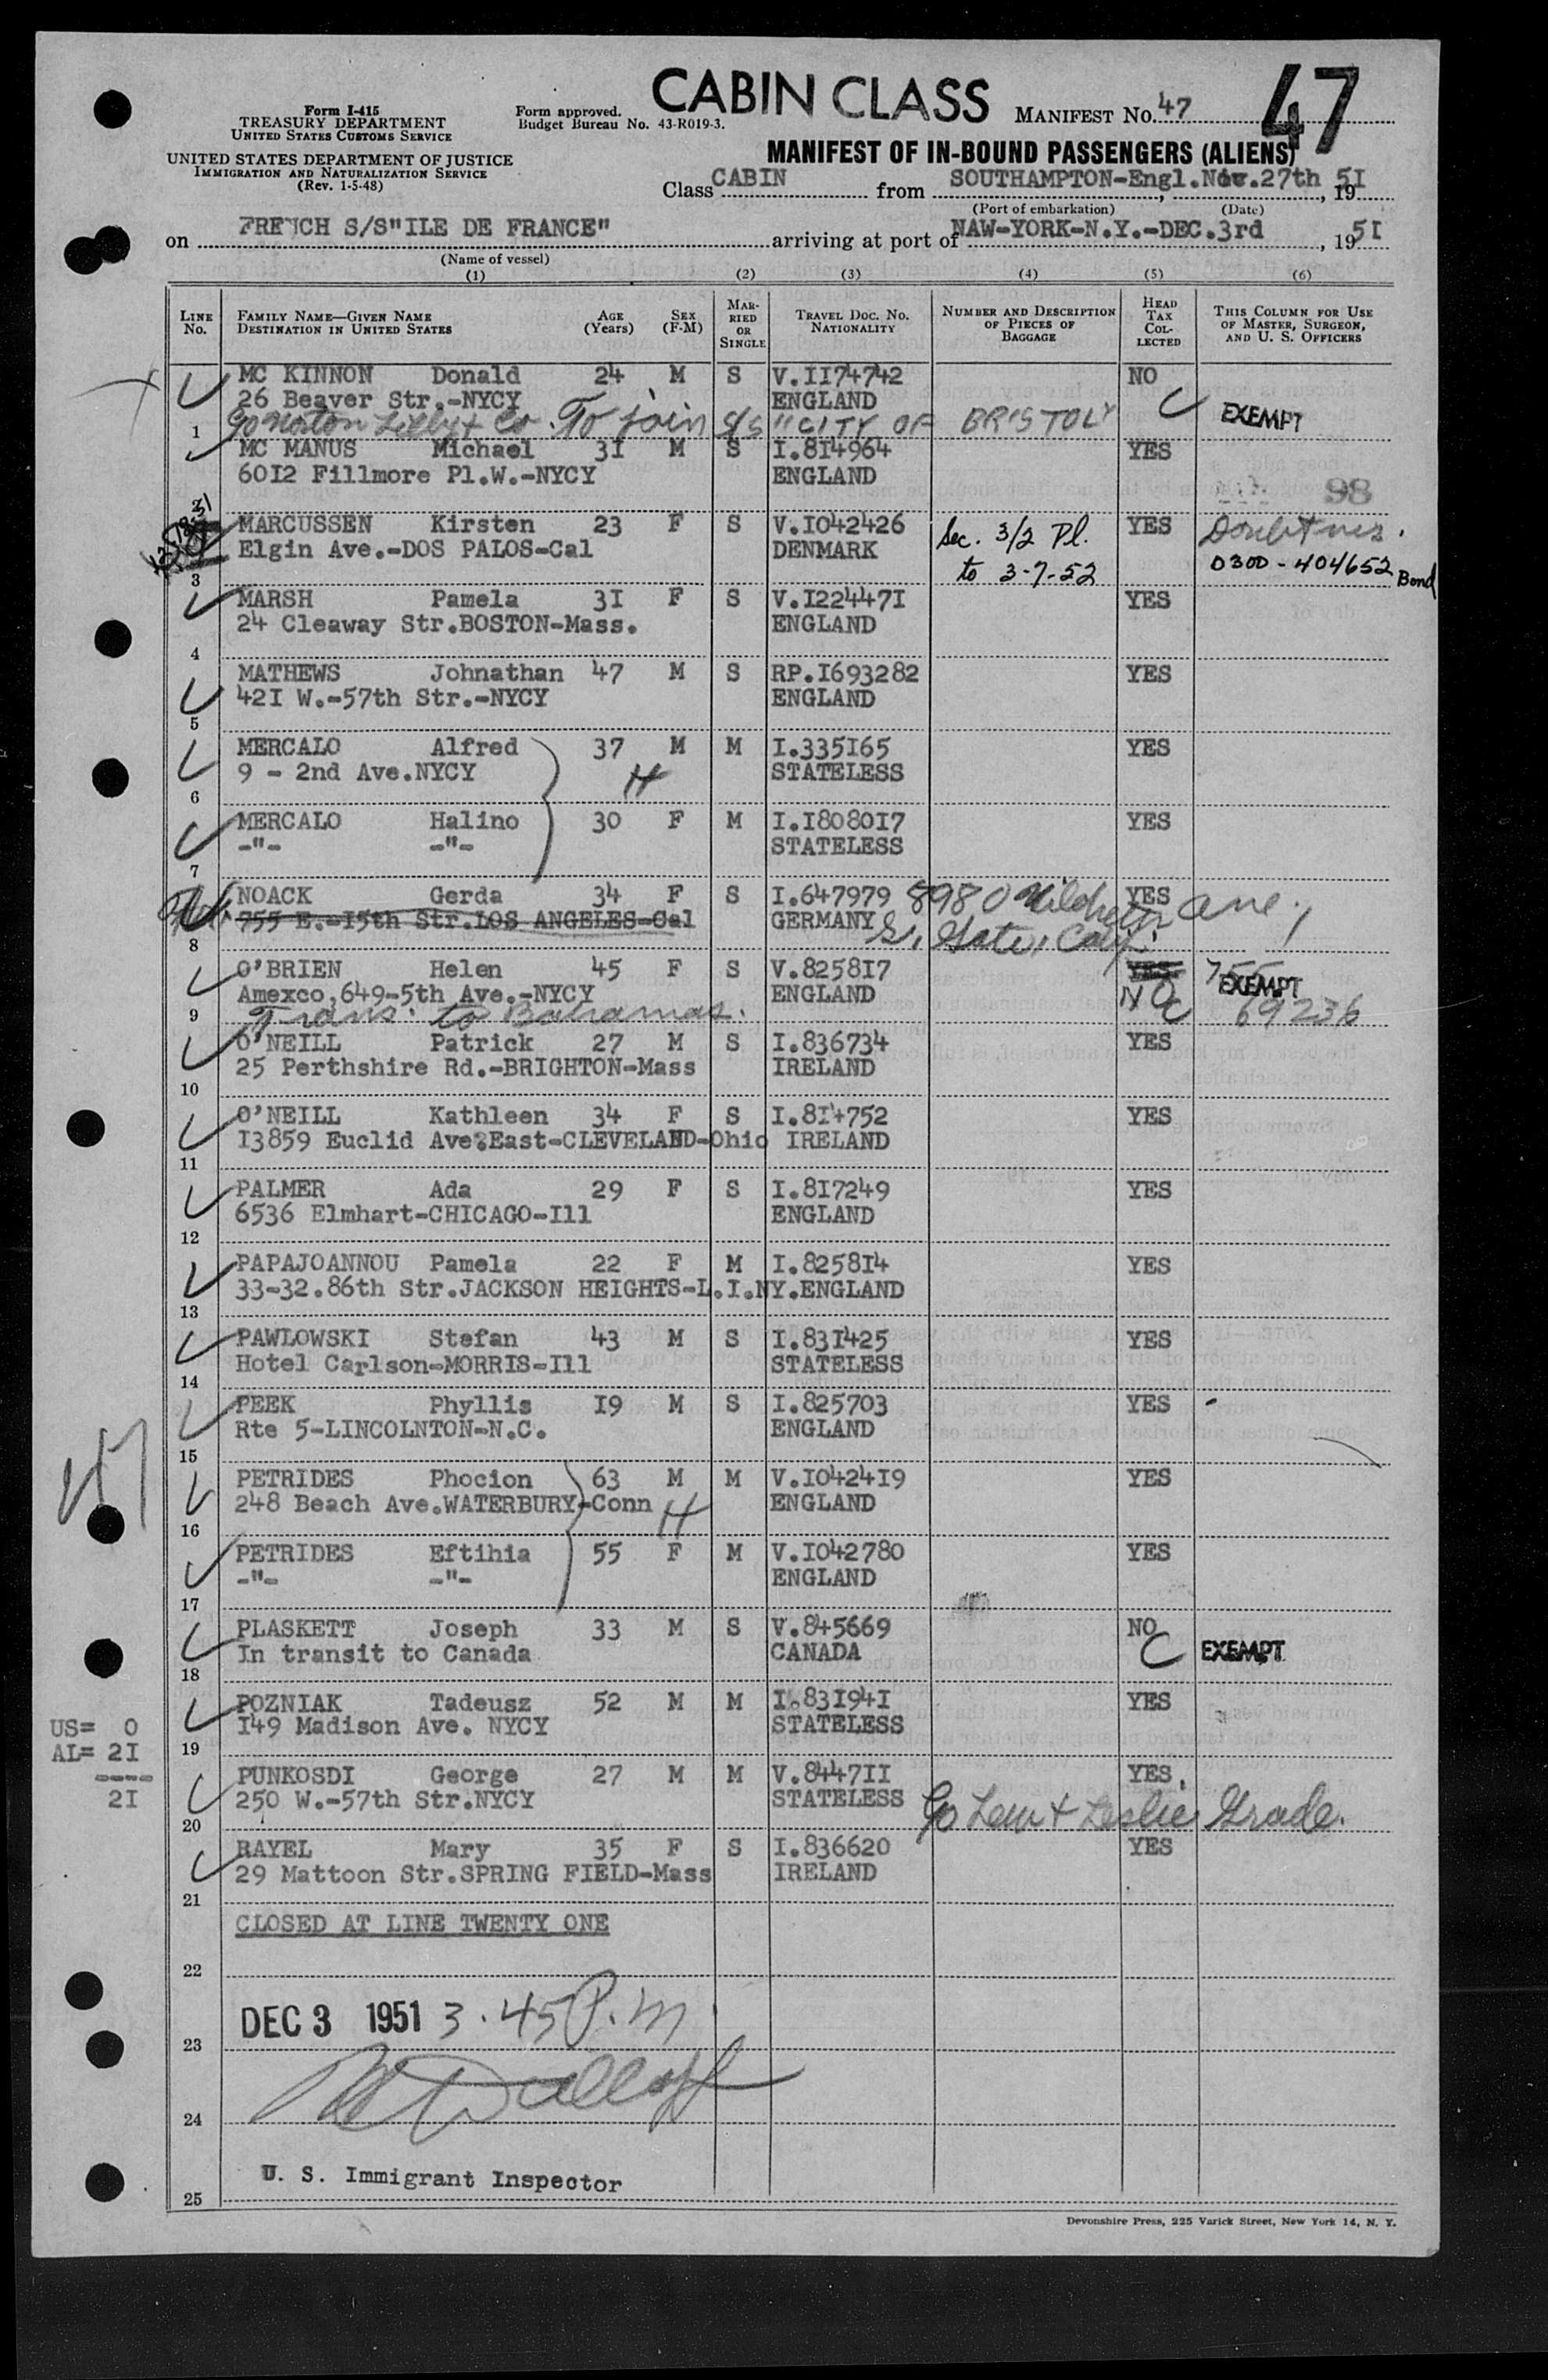 CABIN CLASS
47
Form I-415
TREASURY DEPARTMENT
UNITED STATES CUSTOMS SERVICE
Form approved.
Budget Bureau No. 43-R019-3.
MANIFEST NO. 47
UNITED STATES DEPARTMENT OF JUSTICE
IMMIGRATION AND NATURALIZATION SERVICE
(Rev. 1-5-48)
MANIFEST OF IN-BOUND PASSENGERS (ALIENS)
Class CABIN from SOUTHAMPTON-Engl. Nov.27th, 19 5I
(Port of embarkation) (Date)
on FRENCH S/S"ILE DE FRANCE" arriving at port of NAW-YORK-N.Y.-DEC.3rd, 19 5I
(Name of vessel)
(1) (2) (3) (4) (5) (6)
LINE NO. FAMILY NAME—GIVEN NAME DESTINATION IN UNITED STATES AGE (Years) SEX (F-M) MARRIED OR SINGLE TRAVEL DOC. NO. NATIONALITY NUMBER AND DESCRIPTION OF PIECES OF BAGGAGE HEAD TAX COLLECTED THIS COLUMN FOR USE OF MASTER, SURGEON, AND U. S. OFFICERS
MC KINNON Donald 24 M S V.II74742 NO
26 Beaver Str.-NYCY ENGLAND C EXEMPT
1 c/o Norton Lilly & Co. To join S/S "CITY OF BRISTOL"
MC MANUS Michael 3I M S I.8I4964 YES
60I2 Fillmore Pl.W.-NYCY ENGLAND
2 98
MARCUSSEN Kirsten 23 F S V.I042426 Sec. 3/2 Pl. YES
Elgin Ave.-DOS PALOS-Cal DENMARK to 3-7-52 0300-404652 Bond
3
MARSH Pamela 3I F S V.I22447I YES
24 Cleaway Str.BOSTON-Mass. ENGLAND
4
MATHEWS Johnathan 47 M S RP.I693282 YES
42I W.-57th Str.-NYCY ENGLAND
5
MERCALO Alfred 37 M M I.335I65 YES
9 - 2nd Ave.NYCY H STATELESS
6
MERCALO Halino 30 F M I.I8080I7 YES
-"- -"- STATELESS
7
NOACK Gerda 34 F S I.647979 8980 Ave., YES
755 E.-I5th Str.LOS ANGELES-Cal GERMANY S. Gate, Calif.
8
O'BRIEN Helen 45 F S V.8258I7 YES 755
Amexco,649-5th Ave.-NYCY ENGLAND NO C EXEMPT
9 Trans. to Bahamas. 69236
O'NEILL Patrick 27 M S I.836734 YES
25 Perthshire Rd.-BRIGHTON-Mass IRELAND
10
O'NEILL Kathleen 34 F S I.8I4752 YES
I3859 Euclid Ave.East-CLEVELAND-Ohio IRELAND
11
PALMER Ada 29 F S I.8I7249 YES
6536 Elmhart-CHICAGO-Ill ENGLAND
12
PAPAJOANNOU Pamela 22 F M I.8258I4 YES
33-32.86th Str.JACKSON HEIGHTS-L.I.NY.ENGLAND
13
PAWLOWSKI Stefan 43 M S I.83I425 YES
Hotel Carlson-MORRIS-Ill STATELESS
14
PEEK Phyllis I9 M S I.825703 YES
Rte 5-LINCOLNTON-N.C. ENGLAND
15
PETRIDES Phocion 63 M M V.I0424I9 YES
248 Beach Ave.WATERBURY-Conn H ENGLAND
16
PETRIDES Eftihia 55 F M V.I042780 YES
-"- -"- ENGLAND
17
PLASKETT Joseph 33 M S V.845669 NO
In transit to Canada CANADA C EXEMPT
18
POZNIAK Tadeusz 52 M M I.83I94I YES
I49 Madison Ave. NYCY STATELESS
19
US= 0
AL= 2I
----
2I
PUNKOSDI George 27 M M V.8447II YES
250 W.-57th Str.NYCY STATELESS c/o Lew & Leslie Grade.
20
RAYEL Mary 35 F S I.836620 YES
29 Mattoon Str.SPRING FIELD-Mass IRELAND
21
CLOSED AT LINE TWENTY ONE
22
DEC 3 1951 3.45 P.m.
23
24
U. S. Immigrant Inspector
25
Devonshire Press, 225 Varick Street, New York 14, N. Y.